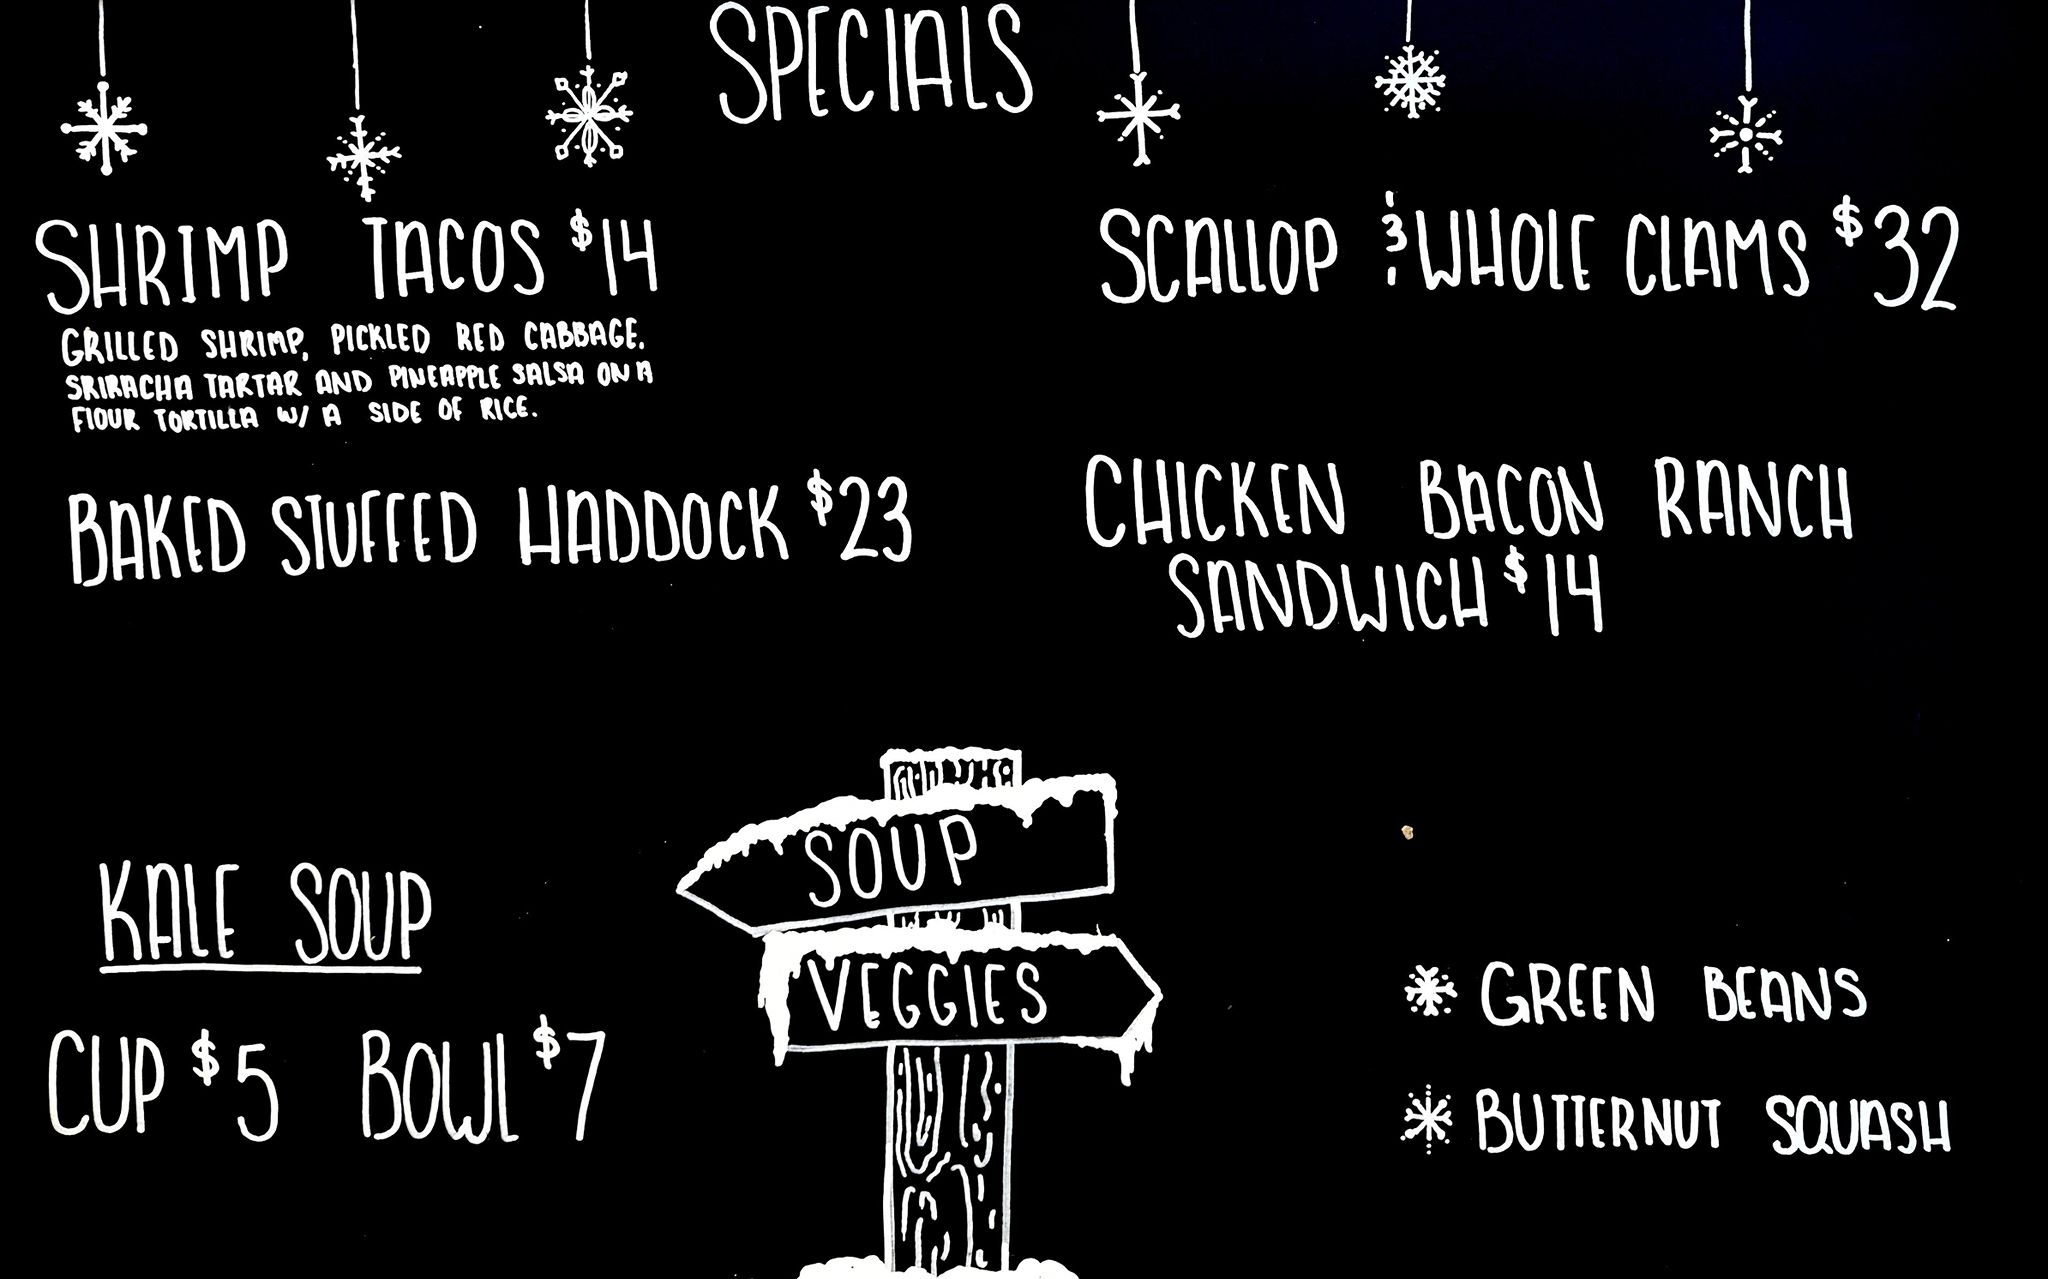 SPECIALS
SHRIMP TACOS $14
GRILLED SHRIMP, PICKLED RED CABBAGE,
SRIRACHA TARTAR AND PINEAPPLE SALSA ON A
FLOUR TORTILLA W/ A SIDE OF RICE.
BAKED STUFFED HADDOCK $23
SCALLOP & WHOLE CLAMS $32
CHICKEN BACON RANCH
SANDWICH $14
SOUP
VEGGIES
KALE SOUP
CUP $5 BOWL $7
GREEN BEANS
BUTTERNUT SQUASH